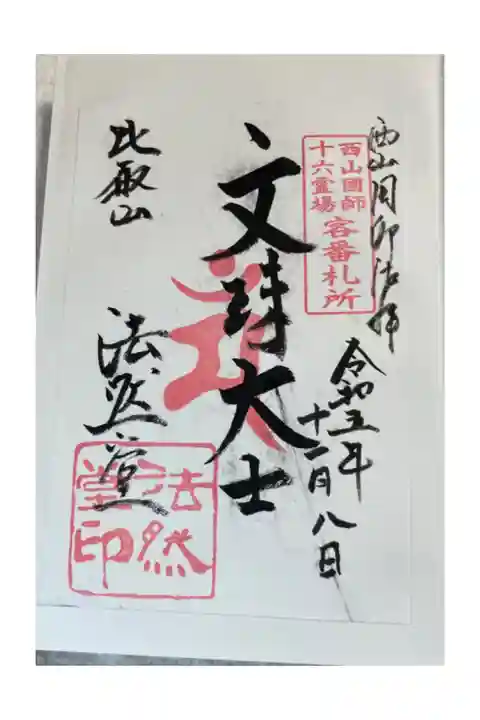 西山国師
十六霊場
客番札所
西山周卯法拝
令和五年
十一月八日
文珠大士
比叡山
法然堂
法然
堂印